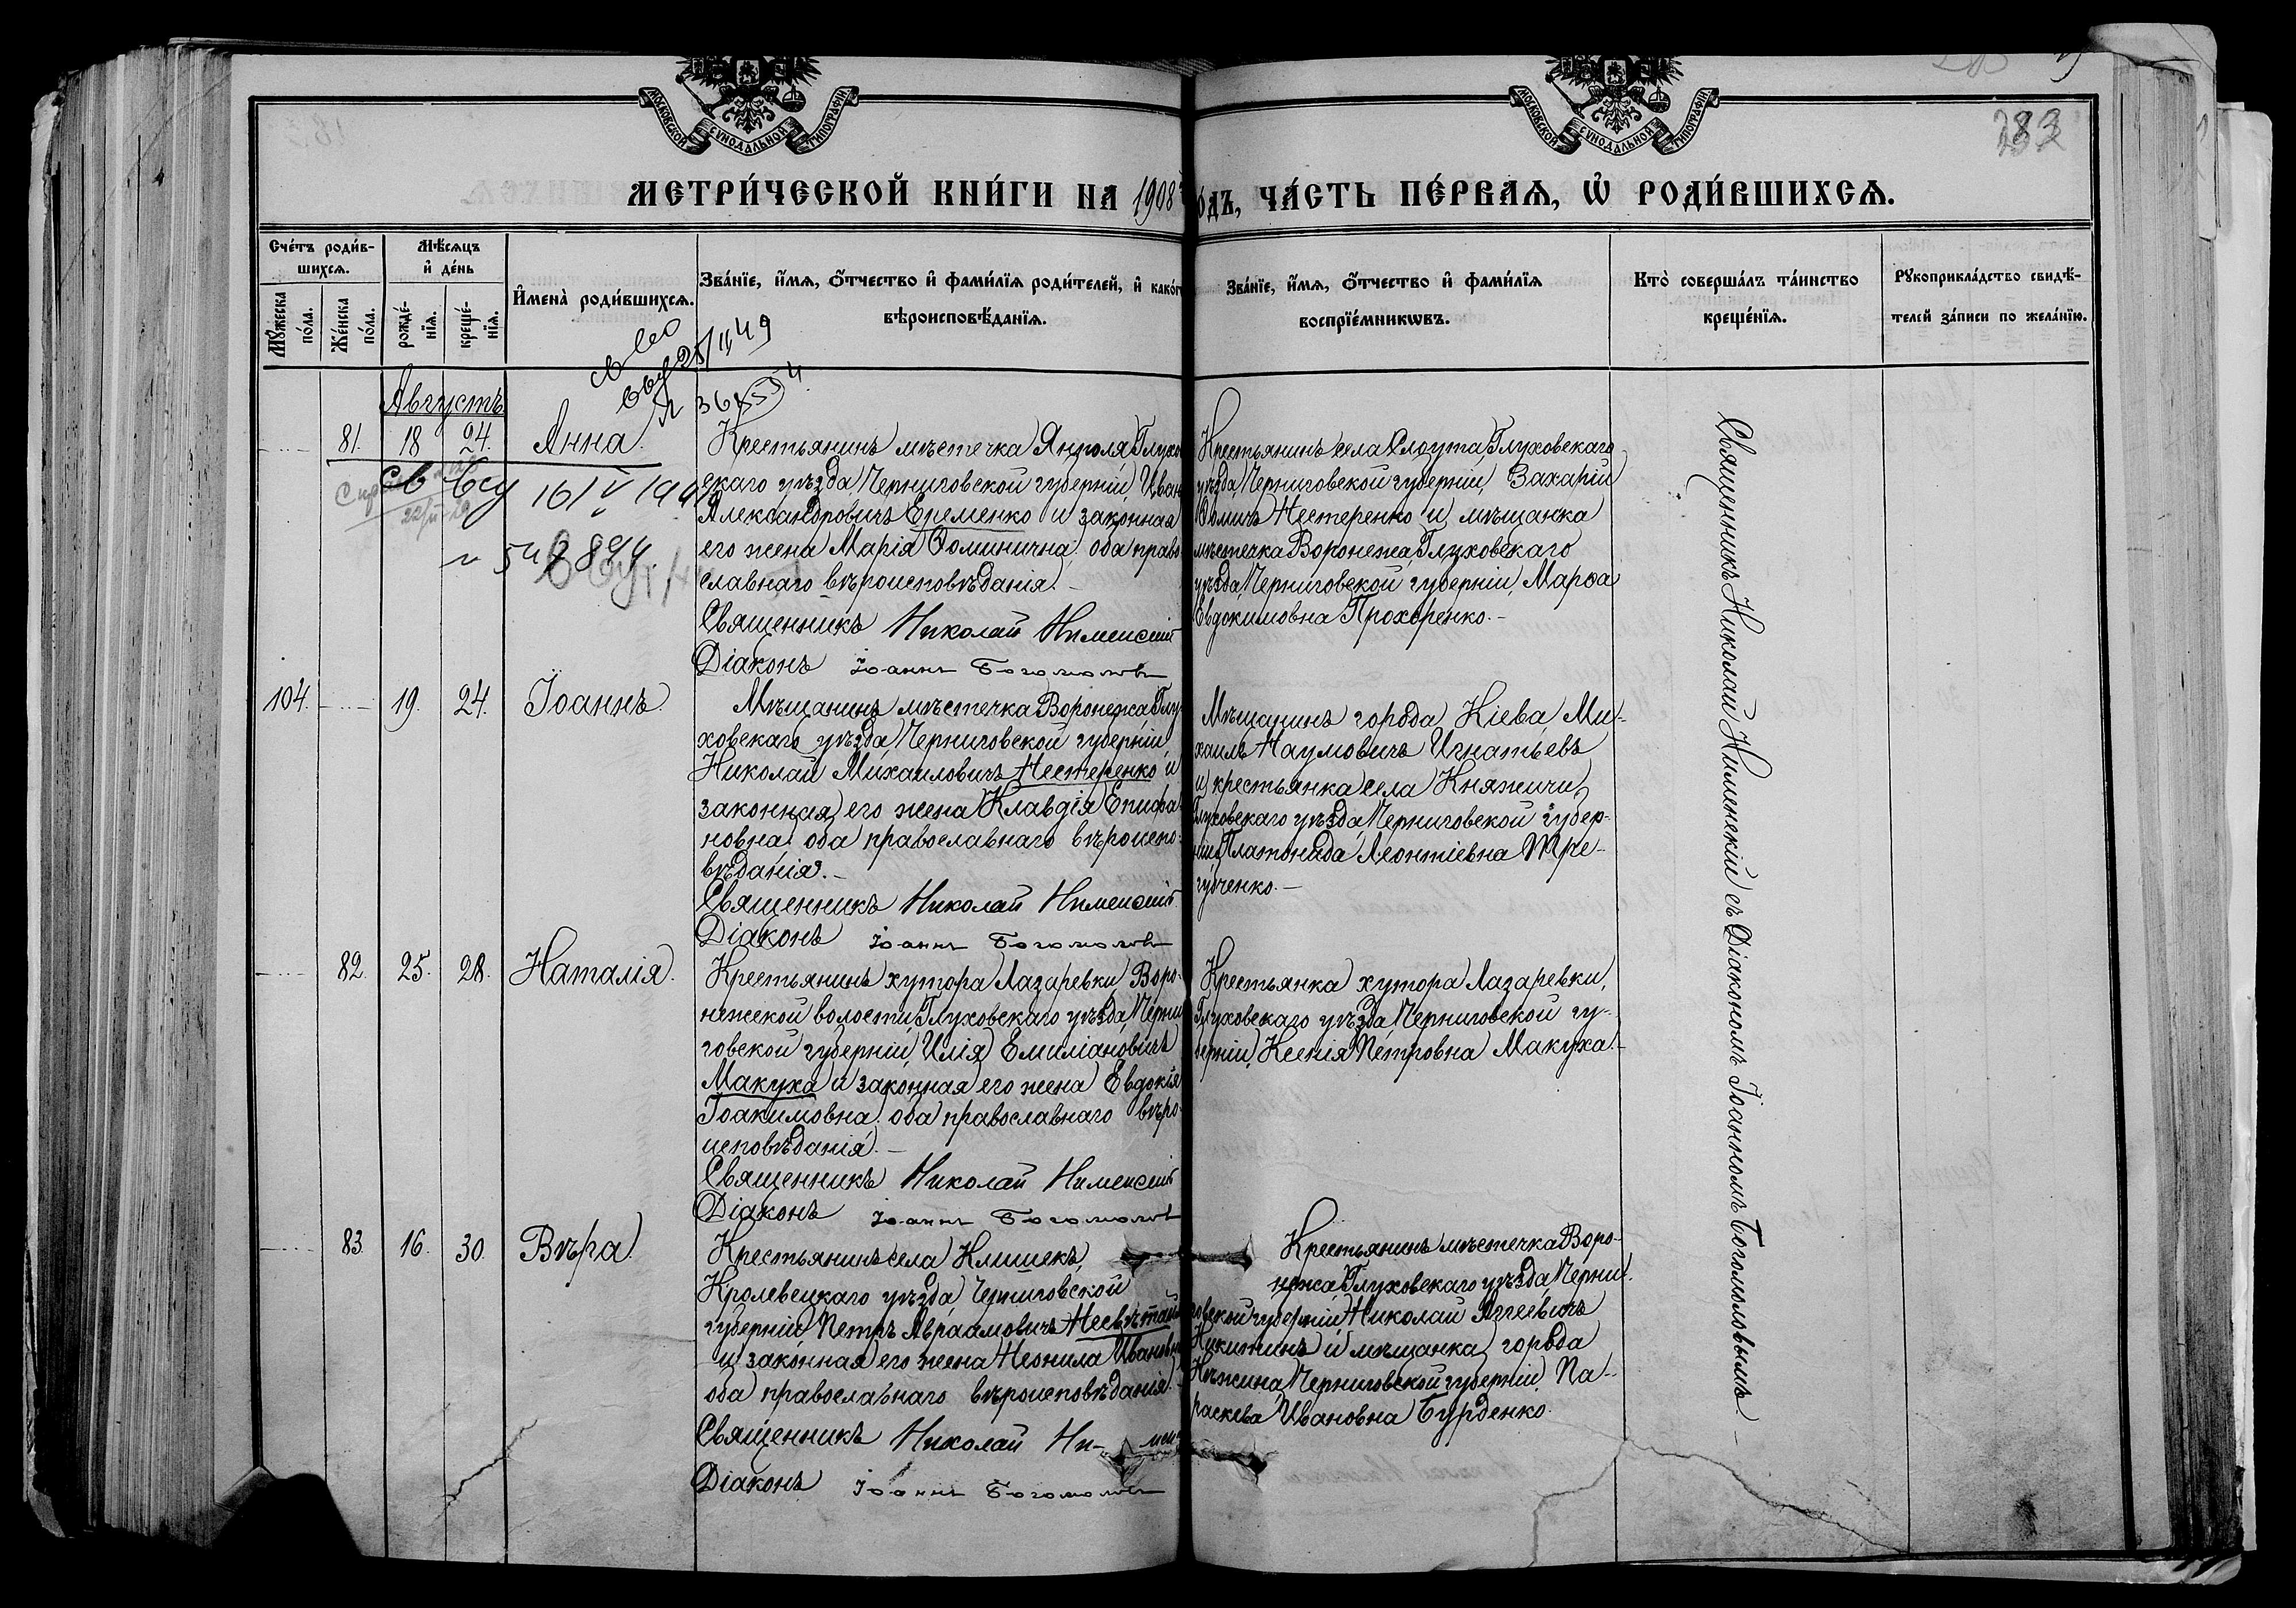 МОСКОВСКОЙ СѴНОДАЛЬНОЙ ТИПОГРАФІИ
МОСКОВСКОЙ СѴНОДАЛЬНОЙ ТИПОГРАФІИ
283
МЕТРИ́ЧЕСКОЙ КНИ́ГИ НА 1908
о́дъ, ЧА́СТЬ ПЕ́РВАЯ, Ѡ҆ РОДИ́ВШИХСѦ.
Сче́тъ роди́в-
шихсѧ.
Мꙋ́жеска
по́ла.
Же́нска
по́ла.
Мѣ́сѧцъ
и҆ де́нь
рожде́-
нїѧ.
креще́-
нїѧ.
И҆мена̀ роди́вшихсѧ.
Зва́нїе, и҆́мѧ, ѻ҆́тчество и҆ фами́лїѧ роди́телей, и҆ како́г
вѣроисповѣ́данїѧ.
Зва́нїе, и҆́мѧ, ѻ҆́тчество и҆ фами́лїѧ
воспрїе́мникѡвъ.
Кто̀ соверша́лъ та́инство
креще́нїѧ.
Рꙋкоприкла́дство свидѣ́-
телей за́писи по жела́нїю.
Августъ
81. 18 24. Анна.
Крестьянинъ мѣстечка Янполя Глухо
вскаго уѣзда, Черниговской губерніи, Иван
Александровичъ Еременко и законная
его жена Марія Ѳоминична, оба право
славнаго вѣроисповѣданія.
Священникъ Николай Нименскій
Діаконъ Іоаннъ Богомоловъ
Крестьянинъ села Слоута Глуховскаго
уѣзда, Черниговской губерніи, Захарій
Ѳомичъ Нестеренко и мѣщанка
мѣстечка Воронежа, Глуховскаго
уѣзда, Черниговской губерніи, Марѳа
Евдокимовна Прохоренко.
Св
16/V 194
104. 19. 24. Іоаннъ.
Мѣщанинъ мѣстечка Воронежа Глу
ховскаго уѣзда, Черниговской губерніи,
Николай Михаиловичъ Нестеренко и
законная его жена Клавдія Епифа
новна, оба православнаго вѣроиспо
вѣданія.
Священникъ Николай Нименскій
Діаконъ Іоаннъ Богомоловъ
Мѣщанинъ города Кіева Ми-
хаилъ Наумовичъ Игнатьевъ
и крестьянка села Княжичи,
Глуховскаго уѣзда, Черниговской губер-
ніи, Платонида Леонтіевна Тре-
губченко.
82. 25. 28. Наталія.
Крестьянинъ хутора Лазаревки Воро-
нежской волости, Глуховскаго уѣзда, Черни
говской губерніи, Илія Емиліановичъ
Макуха и законная его жена Евдокія
Іоакимовна, оба православнаго вѣро-
исповѣданія.
Священникъ Николай Нименскій
Діаконъ Іоаннъ Богомоловъ
Крестьянка хутора Лазаревки,
Глуховскаго уѣзда, Черниговской гу-
берніи, Ксенія Петровна Макуха.
83. 16. 30. Вѣра.
Крестьянинъ села Клишекъ,
Кролевецкаго уѣзда, Черниговской
губерніи, Петръ Авраамовичъ Несвѣтай
и законная его жена Неонила Ивановн
оба православнаго вѣроисповѣданія.
Священникъ Николай Ни-мен
Діаконъ Іоаннъ Богомоловъ
Крестьянинъ мѣстечка Воро-
нежа, Глуховскаго уѣзда, Черни-
говской губерніи Николай Аггеевичъ
Никитинъ и мѣщанка города
Нѣжина, Черниговской губерніи, Па-
раскева Ивановна Бурденко.
Священникъ Николай Нименскій съ Діакономъ Іоанномъ Богомоловымъ